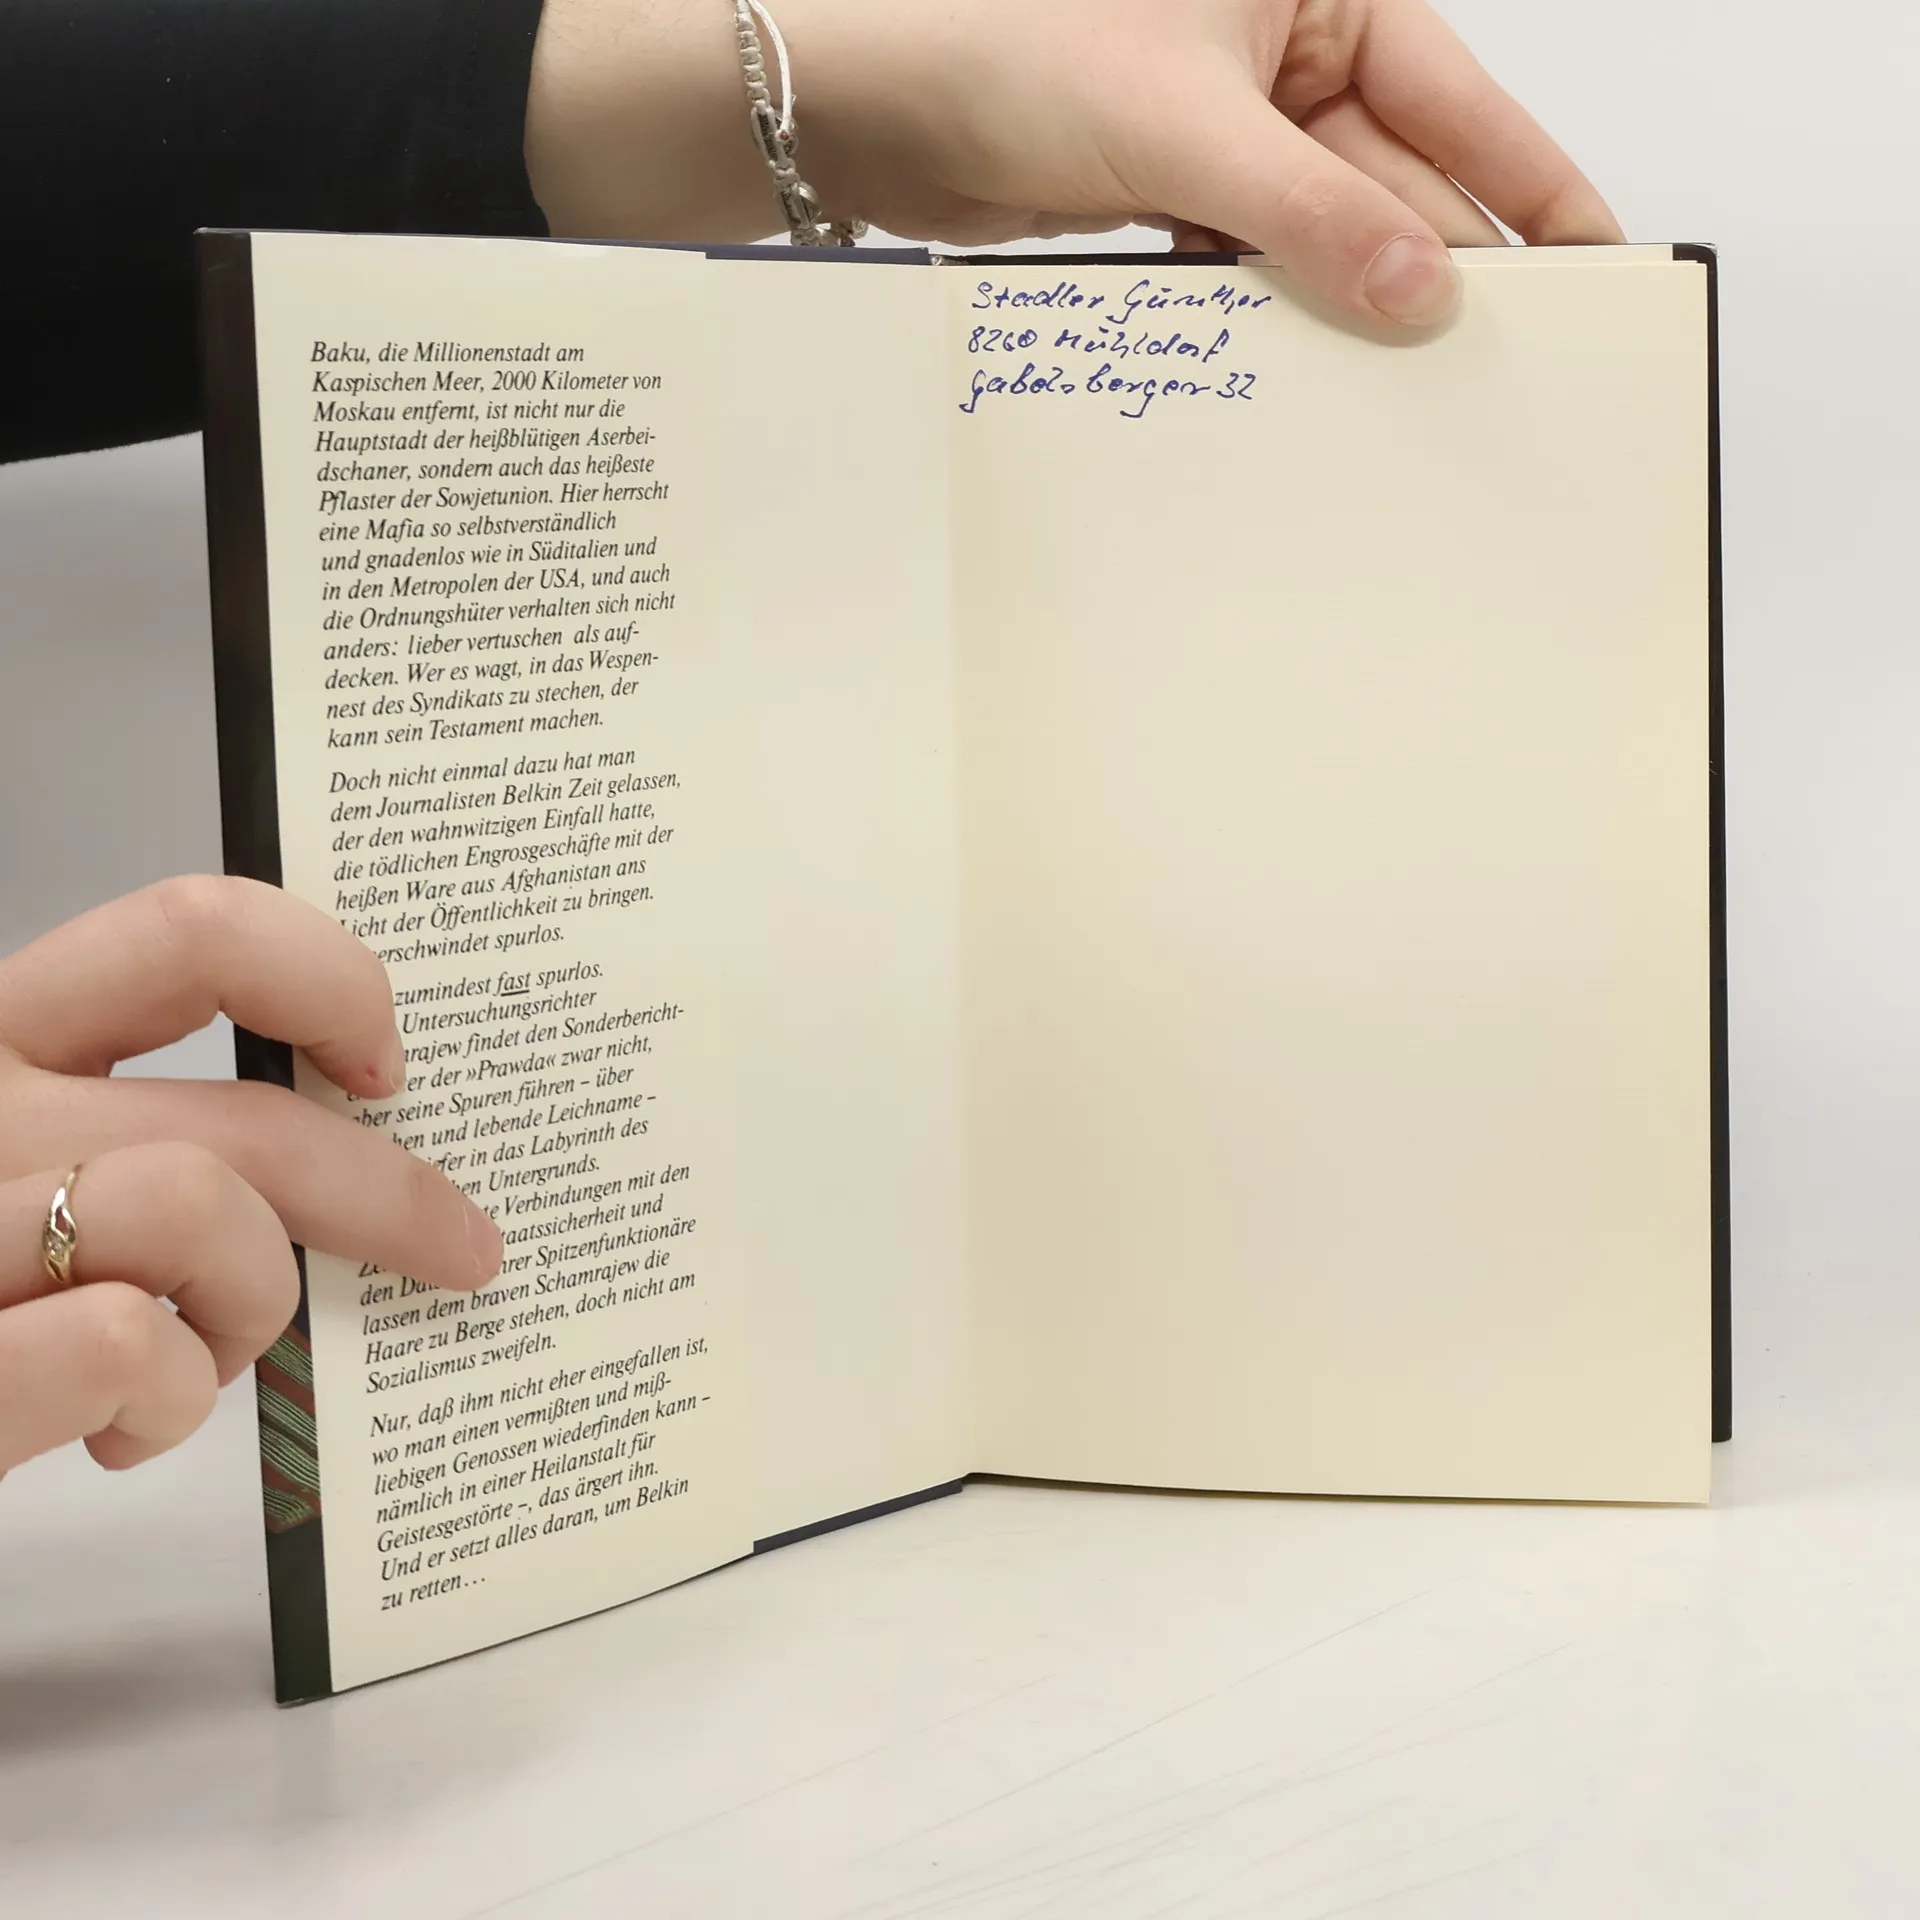 Baku, die Millionenstadt am
Kaspischen Meer, 2000 Kilometer von
Moskau entfernt, ist nicht nur die
Hauptstadt der heißblütigen Aserbei-
dschaner, sondern auch das heißeste
Pflaster der Sowjetunion. Hier herrscht
eine Mafia so selbstverständlich
und gnadenlos wie in Süditalien und
in den Metropolen der USA, und auch
die Ordnungshüter verhalten sich nicht
anders: lieber vertuschen als auf-
decken. Wer es wagt, in das Wespen-
nest des Syndikats zu stechen, der
kann sein Testament machen.
Doch nicht einmal dazu hat man
dem Journalisten Belkin Zeit gelassen,
der den wahnwitzigen Einfall hatte,
die tödlichen Engrosgeschäfte mit der
heißen Ware aus Afghanistan ans
Licht der Öffentlichkeit zu bringen.
verschwindet spurlos.
zumindest fast spurlos.
Untersuchungsrichter
findet den Sonderbericht-
der »Prawda« zwar nicht,
aber seine Spuren führen – über
und lebende Leichname –
in das Labyrinth des
Untergrunds.
Verbindungen mit den
und
Spitzenfunktionäre
lassen dem braven Schamrajew die
Haare zu Berge stehen, doch nicht am
Sozialismus zweifeln.
Nur, daß ihm nicht eher eingefallen ist,
wo man einen vermißten und miß-
liebigen Genossen wiederfinden kann –
nämlich in einer Heilanstalt für
Geistesgestörte –, das ärgert ihn.
Und er setzt alles daran, um Belkin
zu retten…
Stadler Günther
8260 Mühldorf
Gabelsberger 32